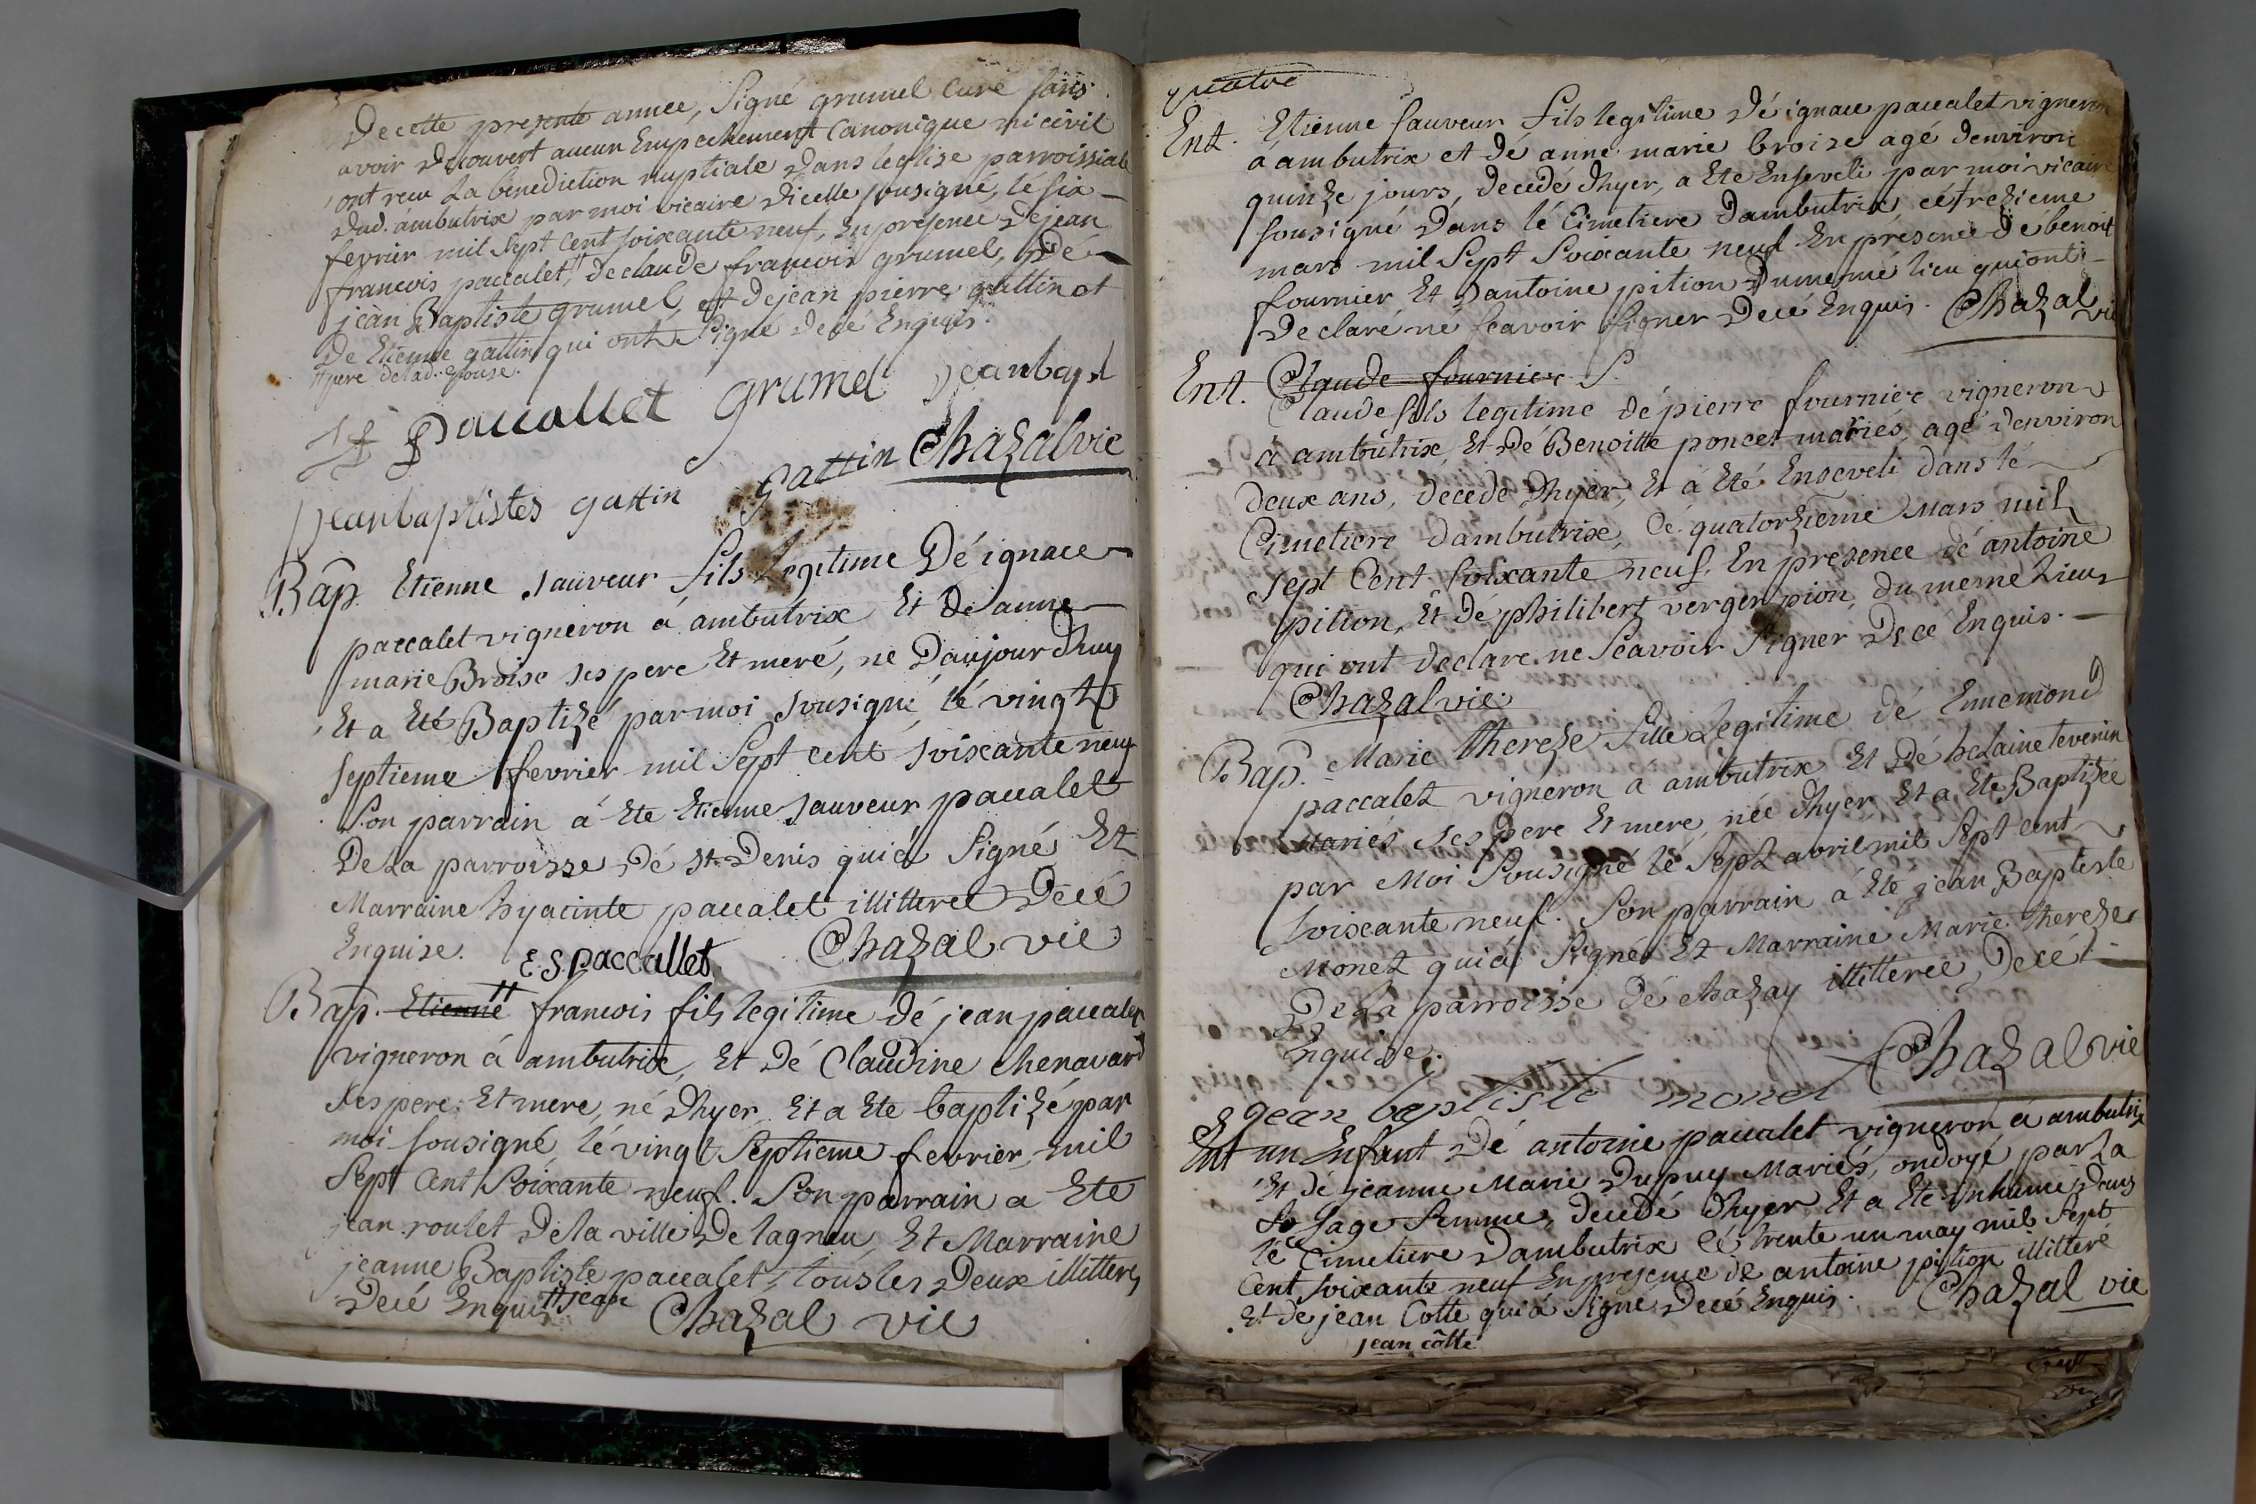 De cette presente année, Signé grumel curé sans
avoir decouvert aucun Empechement Canonique ni civil
ont recu La benediction nuptiale Dans leglise parroissiale
dud. ambutrix par moi vicaire Dicelle sousigné, lé six
fevrier mil Sept Cent soixante neuf, En presence Dejean
francois paccalet, # de claude francois grumel, Dé
jean Baptiste grumel, et de jean pierre gattin et
De Etienne gattin qui ont Signé decé Enquis.
# pere delad. Epouse.
paccallet grumel jeanbapt
jeanbaptistes gattin gattin Chazal vic
Bap. Etienne sauveur fils Legitime Dé ignace
paccalet vigneron á ambutrix Et De anne
marie Broise ses pere Et meré, né Daujourdhuy
Et a Eté Baptizé par moi sousigné, lé vingt
septieme fevrier mil Sept cent soixante neuf
Son parrain á Ete Etienne sauveur paccalet
De La parroisse Dé st Denis qui á Signé Et
Marraine hyacinte paccalet illitteré Decé
Enquise. E S paccallet Chazal vic
Bap. Etienne # francois fils legitime dé jean paccalet
vigneron á ambutrix, Et Dé Claudine chenavard
ses pere Et mere, né Dhyer Et a Ete baptizé par
moi sousigné, lé vingt Septieme fevrier mil
Sept Cent Soixante neuf. Son parrain a Ete
jean roulet De la ville De lagneu, Et Marraine
jeanne Baptiste paccalet, tous les Deux illitterés
Decé Enquis # jean Chazal vic
quatre
Ent. Etienne sauveur fils legitime Dé ignace paccalet vigneron
á ambutrix et de anne marie broise agé denviron
quinze jours, decedé Dhyer, a Eté Enseveli par moi vicaire
sousigné Dans lé Cimetiere Dambutrix, cé trezieme
mars mil Sept Soixante neuf En présence Dé benoit
fournier Et Dantoine pition Du memé lieu qui ont
Declaré né scavoir signer Decé Enquis. Chazal vic
Ent. Claude fournier S.
Claude fils legitime dé pierre fournier vigneron
á ambutrix, Et Dé Benoitte poncet mariés, agé denviron
deux ans, decedé Dhyer, Et á Eté Enseveli dans lé
Cimetiere dambutrix, Cé quatorzieme Mars mil
sept Cent Soixante neuf, En presence dé antoine
pition, Et Dé philibert verger pion, du meme Lieu
qui ont declaré ne Scavoir Signer De cé Enquis.
Chazal vic.
Bap. Marie thereze fille Legitime dé Ennemond
paccalet vigneron a ambutrix Et Dé helaine tevenin
mariés ses pere Et mere, née Dhyer Et a Ete Baptizée
par Moi Sousigné lé Sept avril mil Sept cent
soixante neuf. Son parrain á Eté jean Baptiste
Monet qui á Signé Et Marraine Marie thereze
De La parroisse dé chazay illitterée, Decé
Enquise. Chazal vic
jean baptiste monet
Ent un Enfant Dé antoine paccalet vigneron á ambutrix
Et de jeanne Marie Dupuy Mariés, ondoyé par La
Sage femme, decedé Dhyer Et a Ete inhumé Dans
lé Cimetiere Dambutrix cé trente un may mil Sept
Cent soixante neuf En presence de antoine pition illitteré
Et de jean Cotte qui á Signé Decé Enquis. Chazal vic
jean côtte